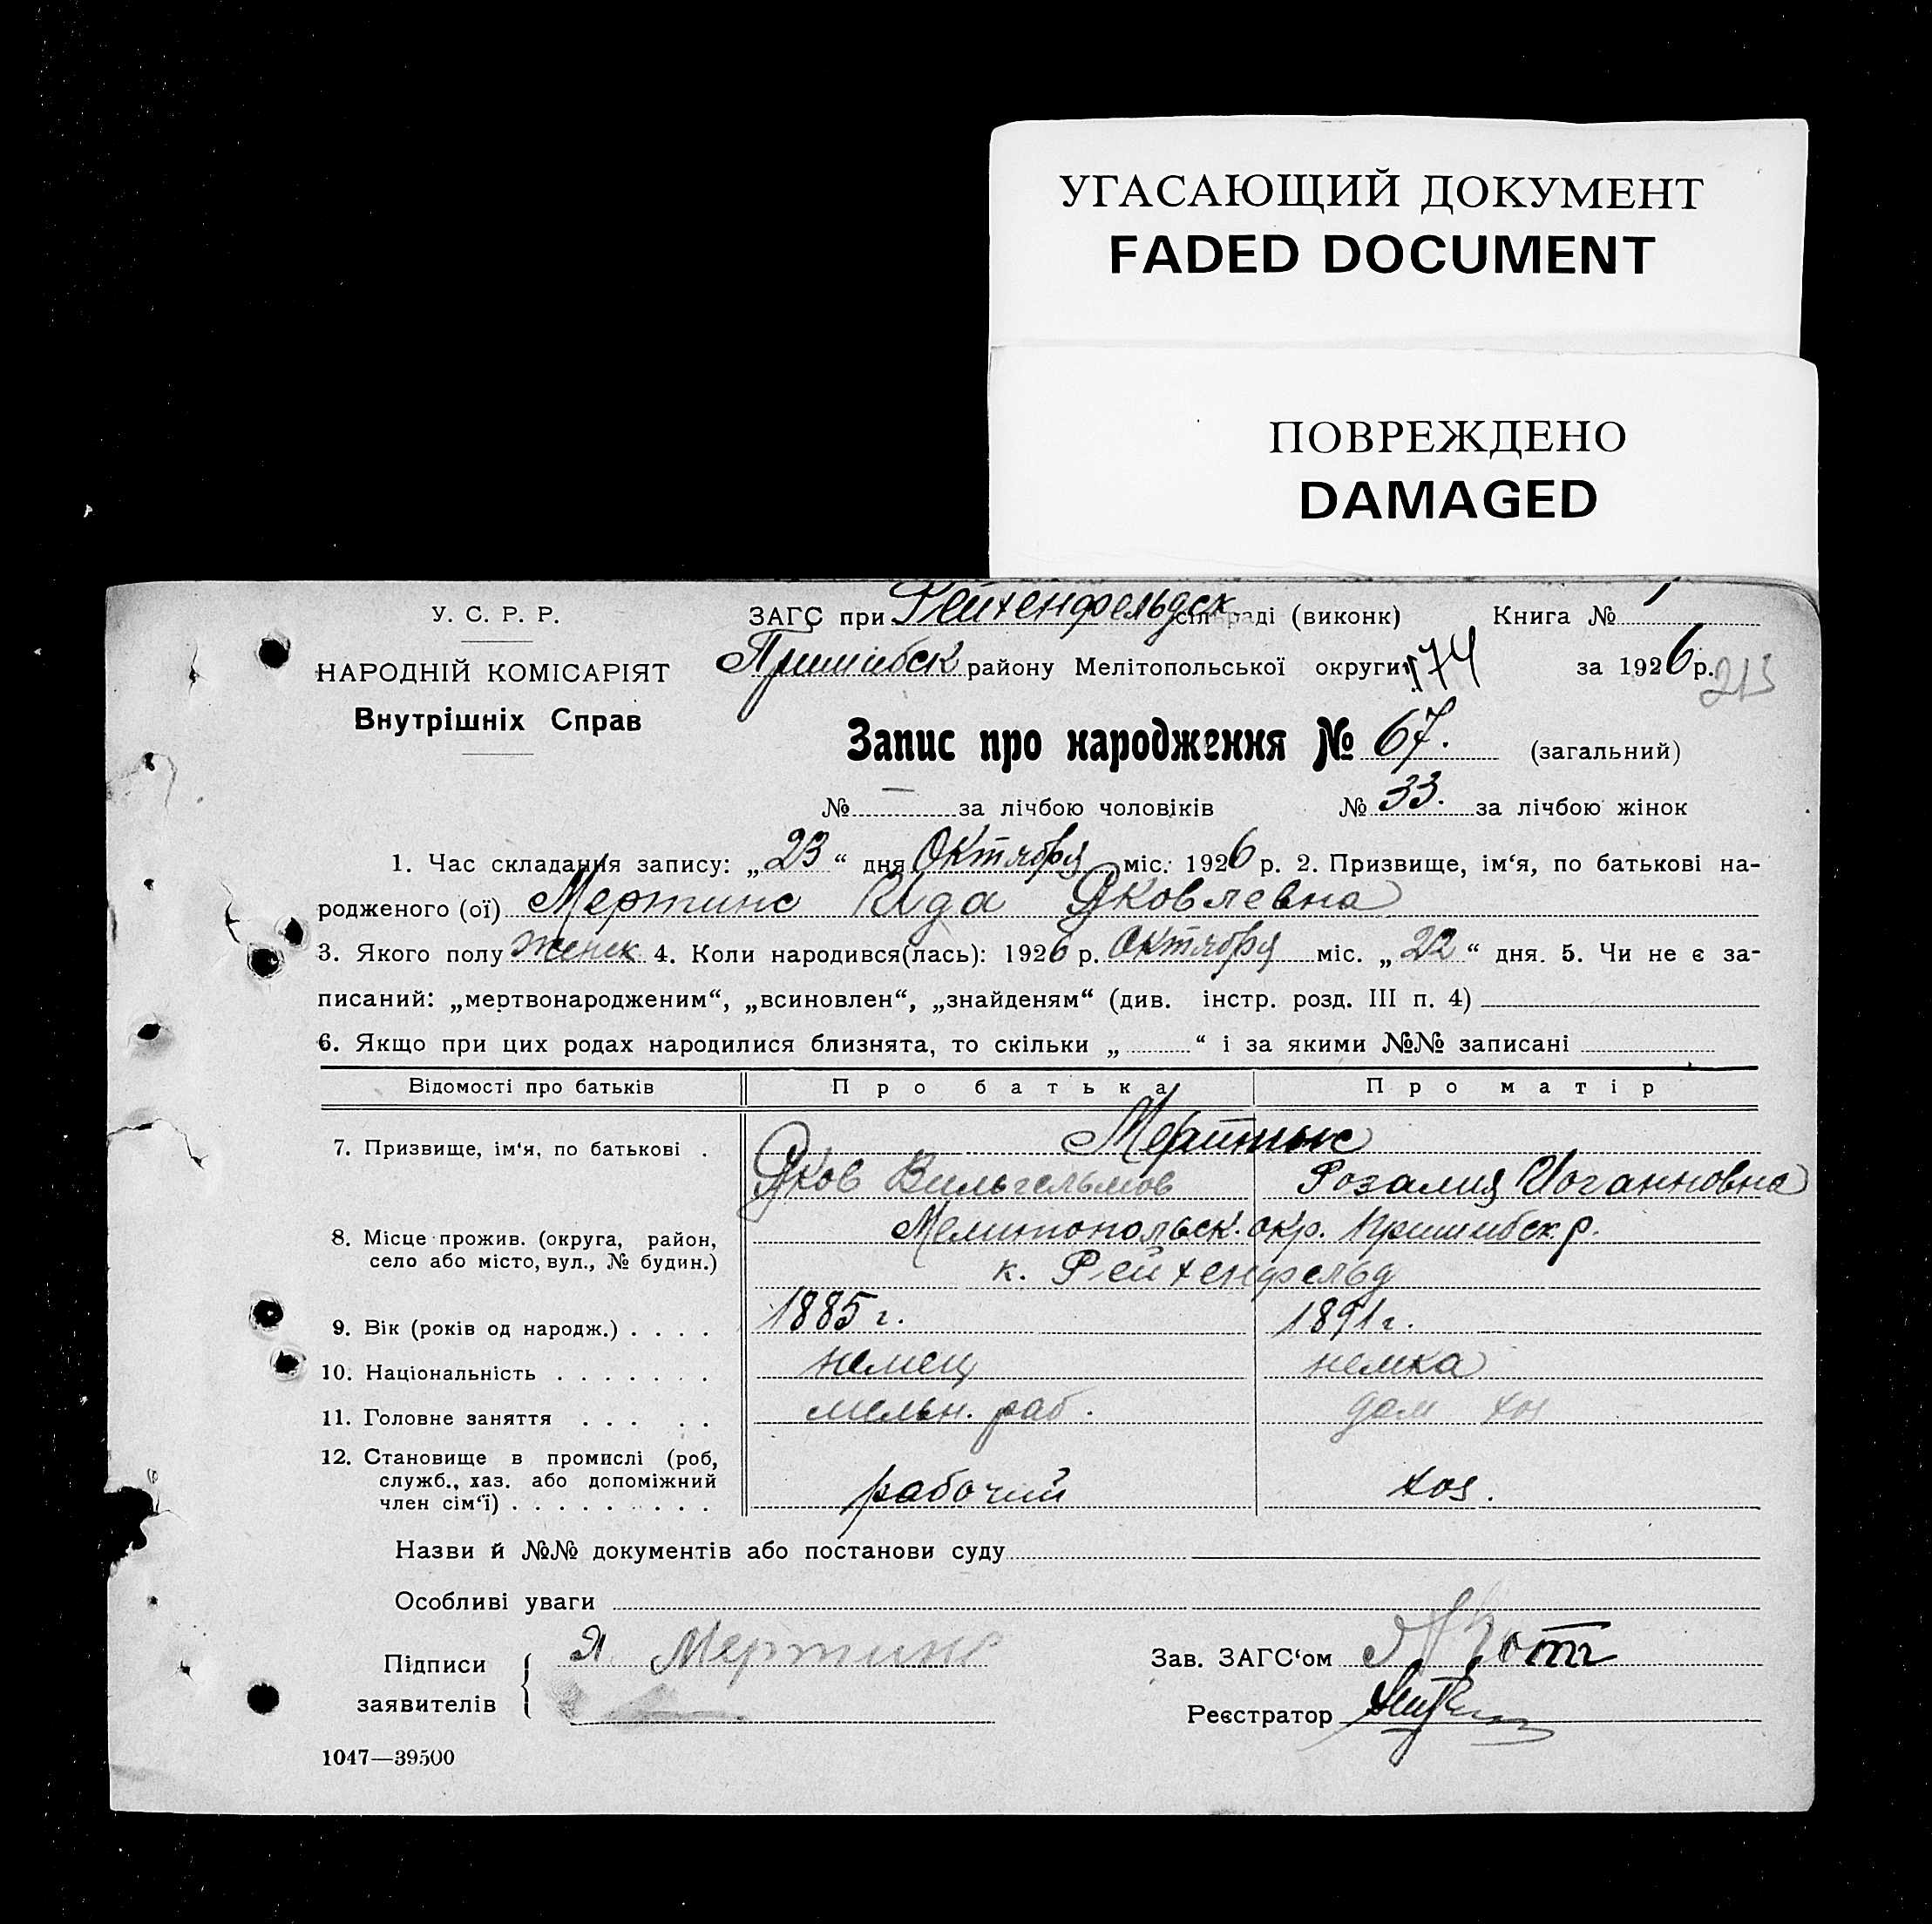 УГАСАЮЩИЙ ДОКУМЕНТ
FADED DOCUMENT
ПОВРЕЖДЕНО
DAMAGED
У. С. Р. Р.
НАРОДНІЙ КОМІСАРІЯТ
Внутрішніх Справ
ЗАГС при Рейхенфельдск сільраді (виконк) Книга № 1
Пришибск району Мелітопольської округи 174 за 1926 р. 213
Запис про народження № 67. (загальний)
№ — за лічбою чоловіків № 33. за лічбою жінок
1. Час складання запису: „23“ дня Октября міс. 1926 р. 2. Призвище, ім‘я, по батькові на-
родженого (ої) Мертинс Ида Яковлевна
3. Якого полу женск 4. Коли народився(лась): 1926 р. Октября міс. „22“ дня. 5. Чи не є за-
писаний: „мертвонародженим“, „всиновлен“, „знайденям“ (див. інстр. розд. III п. 4)
6. Якщо при цих родах народилися близнята, то скільки „ “ і за якими №№ записані
Відомості про батьків Про батька Про матір
7. Призвище, ім‘я, по батькові . Мертинс
Яков Вильгельмов Розалия Иоганновна
8. Місце прожив. (округа, район, Мелитопольск. окр. Пришибск. р.
село або місто, вул., № будин.) к. Рейхенфельд
9. Вік (років од народж.) . . . . 1885 г. 1891 г.
10. Національність . . . . . . . немец немка
11. Головне заняття . . . . . мельн. раб. дом хоз
12. Становище в промислі (роб,
служб., хаз. або допоміжний
член сім‘ї) . . . . . . . . . рабочий хоз.
Назви й №№ документів або постанови суду
Особливі уваги
Підписи заявителів Я. Мертинс
Зав. ЗАГС‘ом
Реєстратор
1047—39500